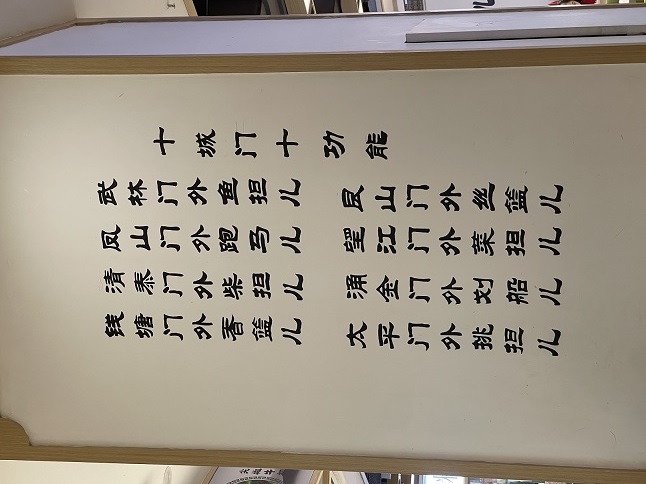 十城门十功能
武林门外鱼担儿 艮山门外丝篮儿
凤山门外跑马儿 望江门外菜担儿
清泰门外柴担儿 涌金门外划船儿
钱塘门外香篮儿 太平门外挑担儿